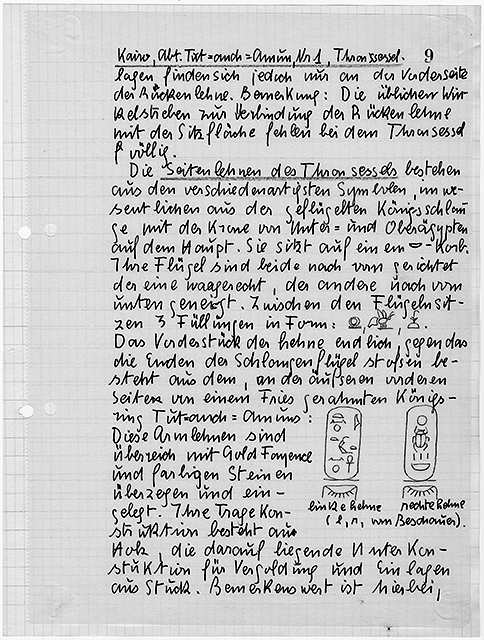 Kairo, Abt. Tut=anch=Amun, Nr 1, Thronsessel. 9
lagen finden sich jedoch nur an der Vorderseite
der Rückenlehne. Bemerkung: Die üblichen Win
kelstreben zur Verbindung der Rückenlehne
mit der Sitzfläche fehlen bei dem Thronsessel
völlig.
Die Seitenlehnen des Thronsessels bestehen
aus den verschiedenartigsten Symbolen, im we-
sentlichen aus der geflügelten Königsschlan
ge, mit der Krone von Unter= und Oberägypten
auf dem Haupt. Sie sitzt auf einem -Korb.
Ihre Flügel sind beide nach vorn gerichtet
der eine waagerecht, der andere nach vorn
unten geneigt. Zwischen den Flügeln sit-
zen 3 Füllungen in Form:
Das Vorderstück der Lehne endlich, gegen das
die Enden der Schlangenflügel stoßen be-
steht aus dem, an der äußeren vorderen
Seite von einem Fries gerahmten Königs-
ring Tut=anch=Amuns:
Diese Armlehnen sind
überreich mit Gold Fayence
und farbigen Steinen
überzogen und ein-
gelegt. Ihre Trage Kon-
struktion besteht aus
Holz, die darauf liegende Unter Kon-
struktion für Vergoldung und Einlagen
aus Stuck. Bemerkenswert ist hierbei,
linke Lehne
rechte Lehne
(l, r, vom Beschauer).